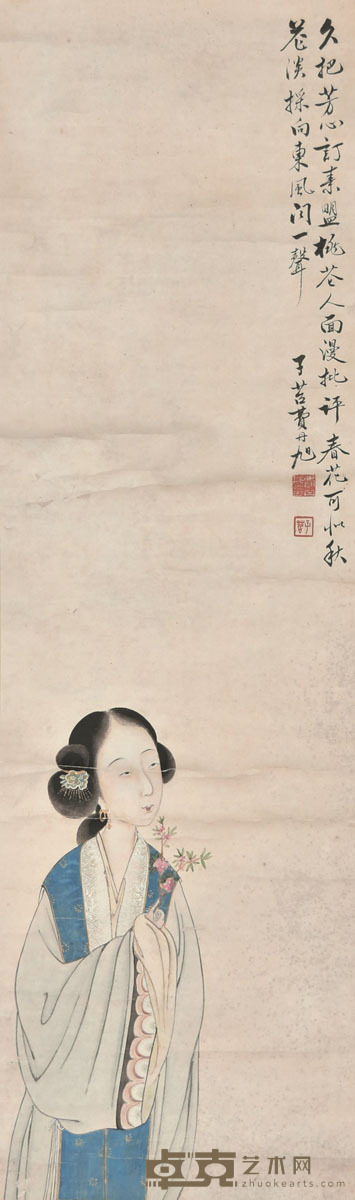 久把芳心訂素盟桃花人面漫批評春花可似秋
花淡採向東風问一聲
子苕費丹旭
卓克艺术网
zhuokearts.com